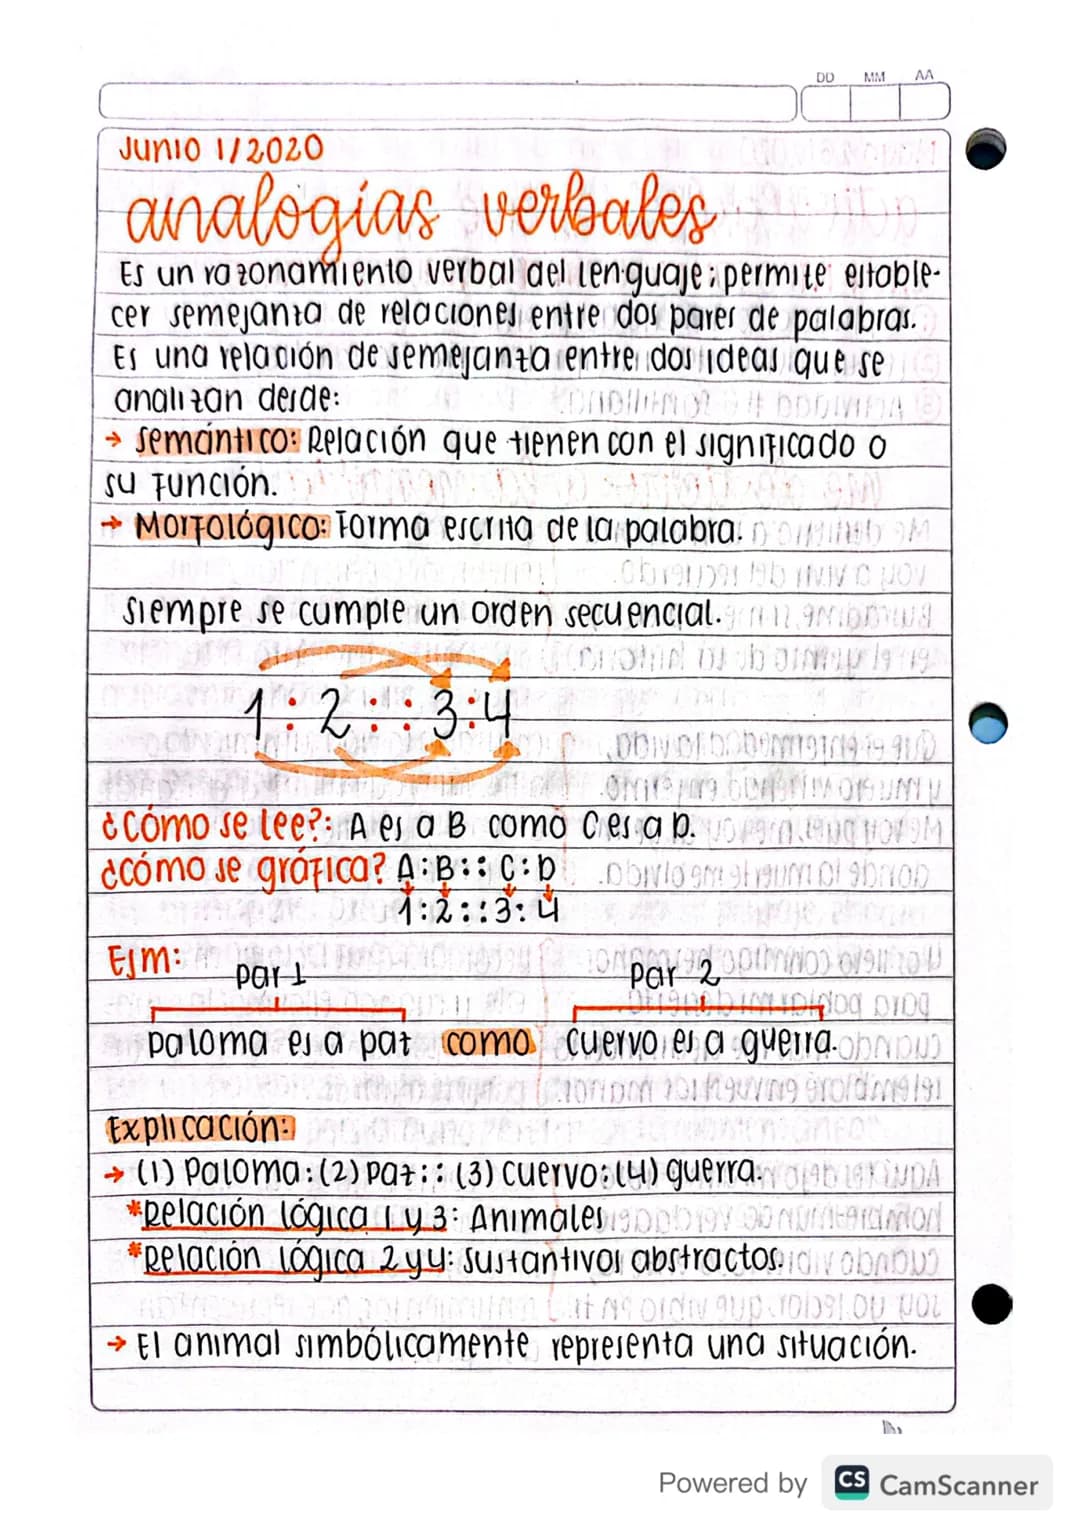 DD MM AA
Junio 1/2020
analogías verbales
Es un razonamiento verbal del lenguaje; permite estable-
cer semejanza de relaciones entre dos pares de palabras.
Es una relación de semejanza entre dos ideas que se
analizan desde:
→ Semántico: Relación que tienen con el significado o
su función.
→ Morfológico: Forma escrita de la palabra.
Siempre se cumple un orden secuencial.
1 : 2 : : 3 : 4
¿Cómo se lee?: A es a B como C es a D.
¿cómo se gráfica? A : B : : C : D
1 : 2 : : 3 : 4
Ejm:
par 1 Par 2
paloma es a paz como cuervo es a guerra.
Explicación:
→ (1) Paloma : (2) Paz : : (3) cuervo : (4) guerra.
*Relación lógica 1 y 3: Animales
*Relación lógica 2 y 4: Sustantivos abstractos.
→ El animal simbólicamente representa una situación.
Powered by CS CamScanner